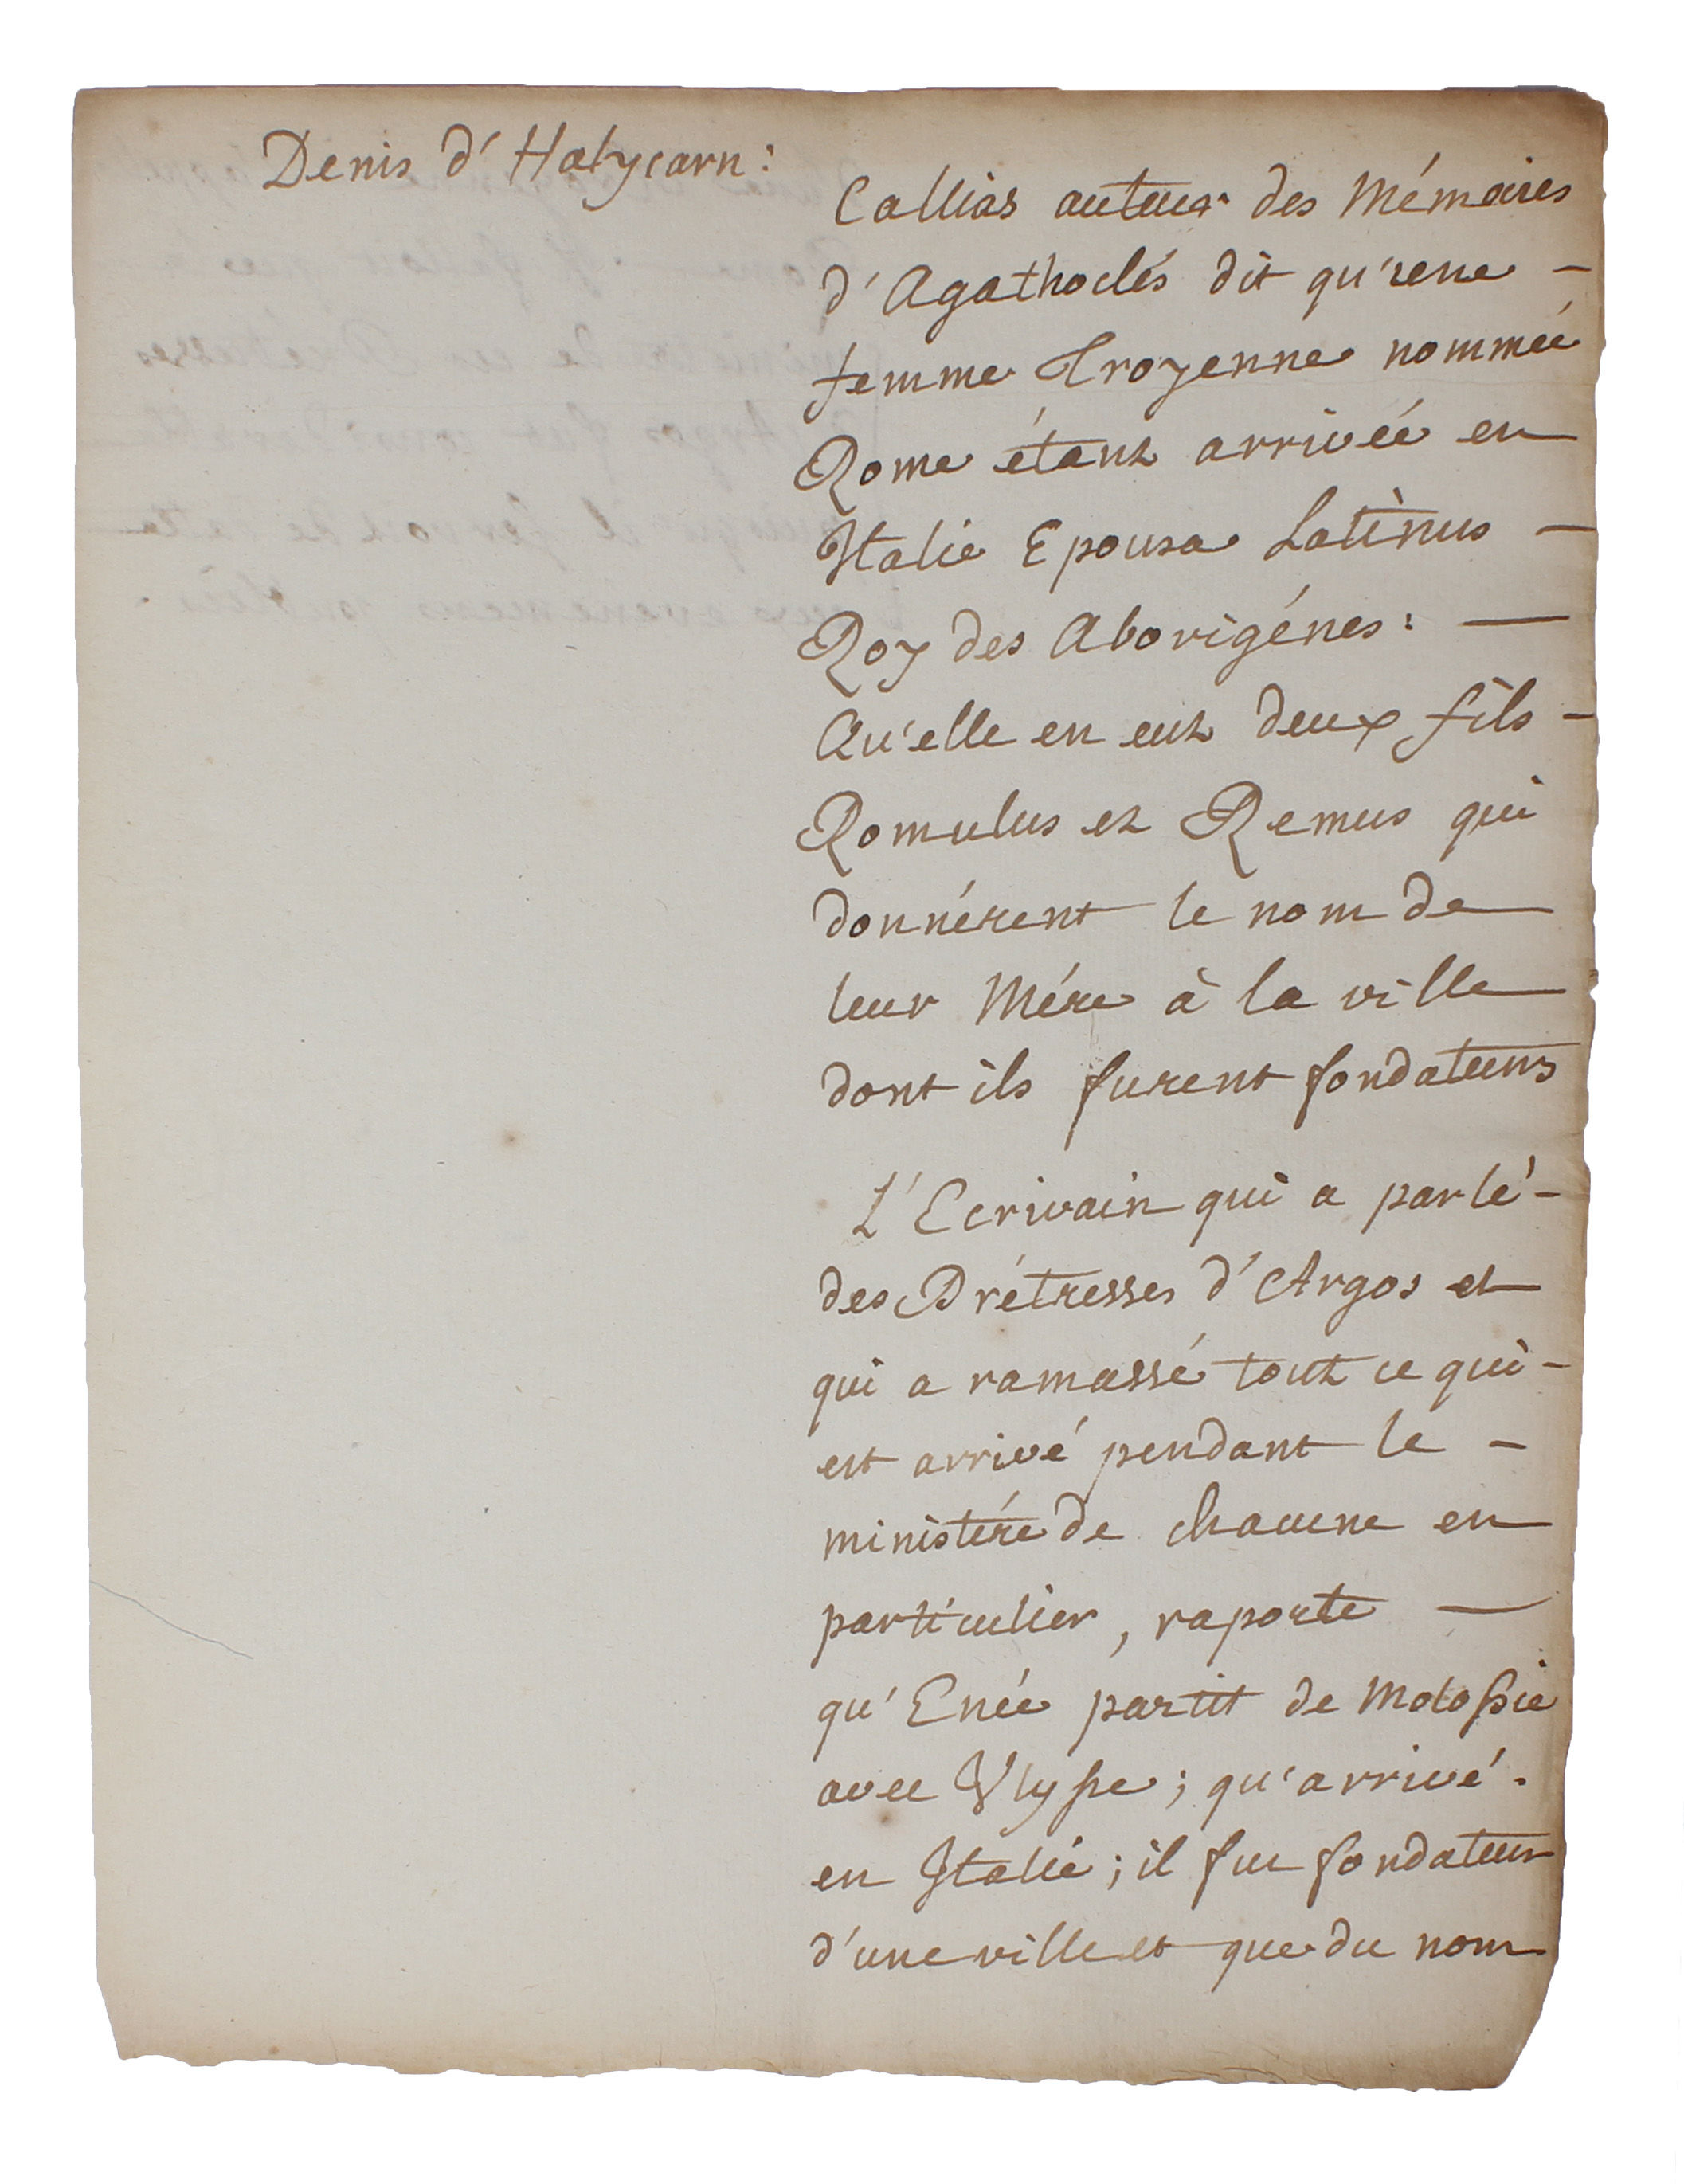 Denis d'Halycarn:
Callias auteur des Mémoires
d'Agathoclés dit qu'une -
femme Troyenne nommée
Rome étant arrivée en
Italie Epousa Latinus -
Roy des Aborigénes: —
Qu'elle en eut deux fils -
Romulus et Remus qui
donnérent le nom de
leur Mére à la ville
dont ils furent fondateurs
L'Ecrivain qui a parlé -
des Prétresses d'Argos et
qui a ramassé tout ce qui -
est arrivé pendant le -
ministére de chacune en
particulier, raporte —
qu'Enée partit de Molossie
avec Ulysse; qu'arrivé -
en Italie; il fut fondateur
d'une ville et que du nom